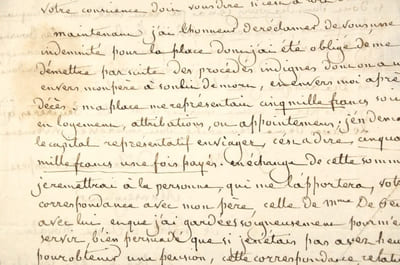 votre conscience doit vous dire
maintenant j'ai l'honneur de réclamer de vous une
indemnité pour la place dont j'ai été obligé de me
démettre par suite des procédés indignes dont on a
envers mon père à son lit de mort, et envers moi aprè
décès; ma place me representait cinq mille francs soi
en logement, attributions, ou appointement; j'en dema
le capital representatif en viager, c'est a dire, cinqua
mille francs une fois payés. en échange de cette somm
je remettrai à la personne, qui me l'apportera, vot
correspondance avec mon père, celle de mme De
avec lui en que j'ai gardées soigneusement pour m'e
servir, bien persuadé que si je n'étais pas assez heu
pour obtenir une pension, cette correspondance relati